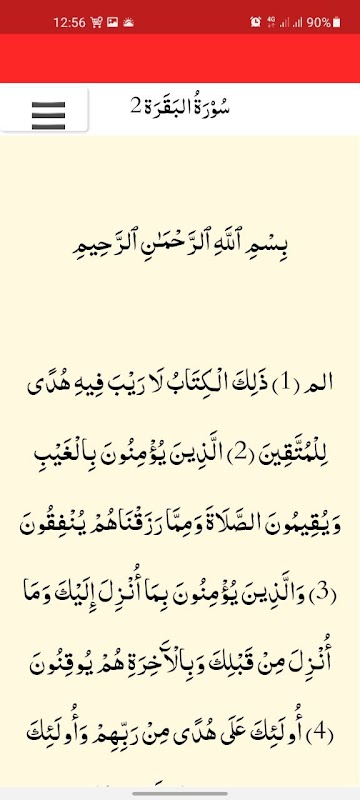 12:56 4G 90%
سُوْرَةُ البَقَرَة 2
بِسْمِ ٱللَّهِ ٱلرَّحْمَـٰنِ ٱلرَّحِيمِ
الم (1) ذَلِكَ الْكِتَابُ لَا رَيْبَ فِيهِ هُدًى
لِلْمُتَّقِينَ (2) الَّذِينَ يُؤْمِنُونَ بِالْغَيْبِ
وَيُقِيمُونَ الصَّلَاةَ وَمِمَّا رَزَقْنَاهُمْ يُنْفِقُونَ
(3) وَالَّذِينَ يُؤْمِنُونَ بِمَا أُنْزِلَ إِلَيْكَ وَمَا
أُنْزِلَ مِنْ قَبْلِكَ وَبِالْآَخِرَةِ هُمْ يُوقِنُونَ
(4) أُولَئِكَ عَلَى هُدًى مِنْ رَبِّهِمْ وَأُولَئِكَ